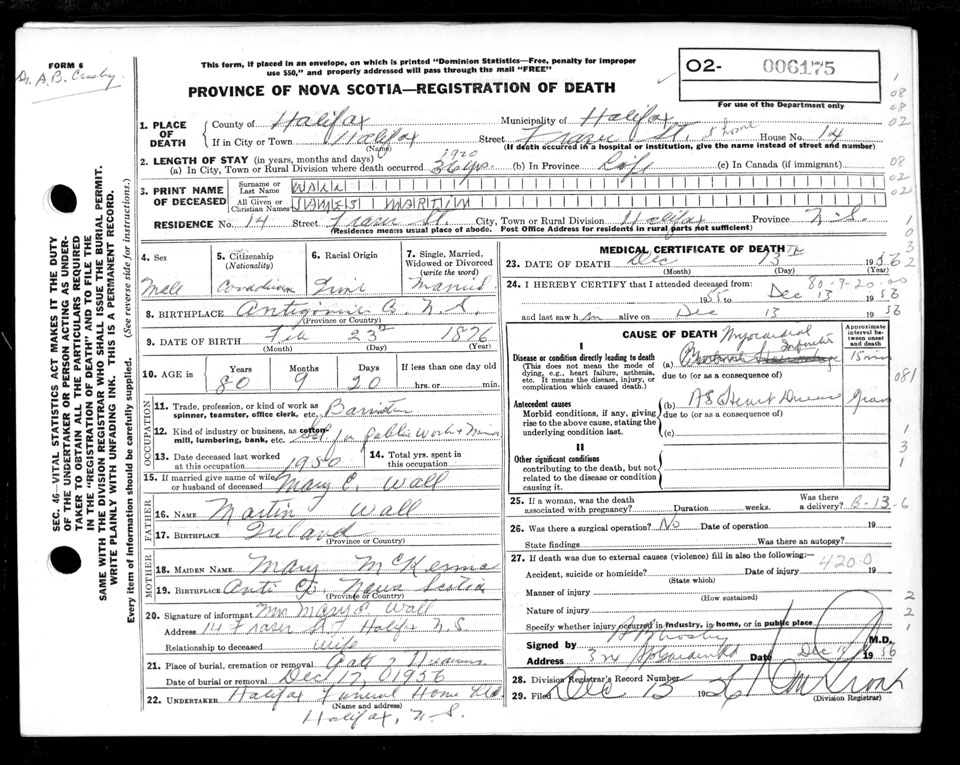 FORM 6
Dr. A. B. Crosby.
This form, if placed in an envelope, on which is printed "Dominion Statistics—Free, penalty for improper
use $50," and properly addressed will pass through the mail "FREE"
O2- 006175
For use of the Department only
PROVINCE OF NOVA SCOTIA—REGISTRATION OF DEATH
1. PLACE OF DEATH
County of Halifax Municipality of Halifax
If in City or Town Halifax Street Fraser St. at home House No. 14
(Name) (If death occurred in a hospital or institution, give the name instead of street and number)
2. LENGTH OF STAY (in years, months and days)
1920
(a) In City, Town or Rural Division where death occurred 36 yrs. (b) In Province Life (c) In Canada (if immigrant)
3. PRINT NAME OF DECEASED
Surname or Last Name WALL
All Given or Christian Names JAMES MARTIN
RESIDENCE No. 14 Street Fraser St. City, Town or Rural Division Halifax Province N.S.
(Residence means usual place of abode. Post Office Address for residents in rural parts not sufficient)
4. Sex
Male
5. Citizenship
(Nationality)
Canadian
6. Racial Origin
7. Single, Married, Widowed or Divorced
(write the word)
Married
8. BIRTHPLACE Antigonish Co. N.S.
(Province or Country)
9. DATE OF BIRTH Feb 23rd 1876
(Month) (Day) (Year)
10. AGE in
Years Months Days If less than one day old
80 9 20 hrs. or min.
OCCUPATION
11. Trade, profession, or kind of work as
spinner, teamster, office clerk, etc. Barrister
12. Kind of industry or business, as cotton-
mill, lumbering, bank, etc. for Public Works &
13. Date deceased last worked
at this occupation 1950
14. Total yrs. spent in
this occupation
15. If married give name of wife
or husband of deceased Mary E. Wall
FATHER
16. NAME Martin Wall
17. BIRTHPLACE Ireland
(Province or Country)
MOTHER
18. MAIDEN NAME Mary McKenna
19. BIRTHPLACE Anti Co. Nova Scotia
(Province or Country)
20. Signature of informant Mrs Mary E. Wall
Address 14 Fraser St Halifax N.S.
Relationship to deceased wife
21. Place of burial, cremation or removal Gate of Heaven
Date of burial or removal Dec 17 1956
22. UNDERTAKER Halifax Funeral Home Ltd
(Name and address)
Halifax, N.S.
MEDICAL CERTIFICATE OF DEATH
23. DATE OF DEATH Dec 13th 1956
(Month) (Day) (Year)
80-9-20-00
24. I HEREBY CERTIFY that I attended deceased from:
1955 to Dec 13 1956
and last saw him alive on Dec 13 1956
CAUSE OF DEATH
Approximate interval between onset and death
I
Disease or condition directly leading to death
(This does not mean the mode of dying, e.g., heart failure, asthenia, etc. It means the disease, injury, or complication which caused death.)
(a) Myocardial Infarction 15 min
due to (or as a consequence of)
Antecedent causes
Morbid conditions, if any, giving rise to the above cause, stating the underlying condition last.
(b) AS Heart Disease years
due to (or as a consequence of)
(c)
II
Other significant conditions
contributing to the death, but not related to the disease or condition causing it.
25. If a woman, was the death
associated with pregnancy? Duration weeks.
Was there
a delivery? B-13-6
26. Was there a surgical operation? No Date of operation 19
State findings Was there an autopsy?
27. If death was due to external causes (violence) fill in also the following:
420.0
Accident, suicide or homicide? Date of injury 19
(State which)
Manner of injury
(How sustained)
Nature of injury
Specify whether injury occurred in Industry, in home, or in public place
Signed by A B Crosby M.D.
Address Date Dec 1956
28. Division Registrar's Record Number
29. Filed Dec 15 1956
(Division Registrar)
SEC. 46—VITAL STATISTICS ACT MAKES IT THE DUTY
OF THE UNDERTAKER OR PERSON ACTING AS UNDER-
TAKER TO OBTAIN ALL THE PARTICULARS REQUIRED
IN THE "REGISTRATION OF DEATH" AND TO FILE THE
SAME WITH THE DIVISION REGISTRAR WHO SHALL ISSUE THE BURIAL PERMIT.
WRITE PLAINLY WITH UNFADING INK. THIS IS A PERMANENT RECORD.
Every item of information should be carefully supplied. (See reverse side for instructions.)